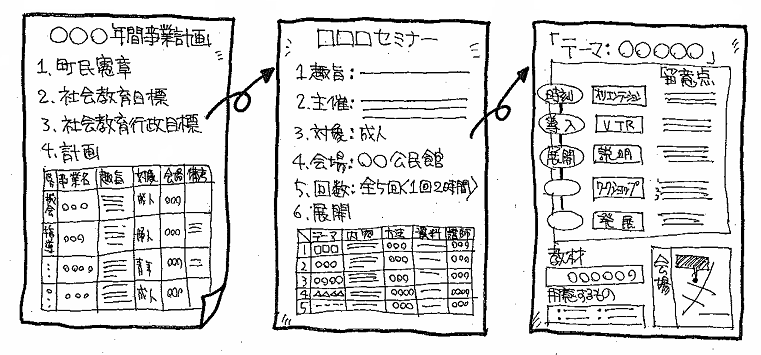 ○○○年間事業計画
1. 町民憲章
2. 社会教育目標
3. 社会教育行政目標
4. 計画
事業名 趣旨 対象 会場 備考
機会 ○○○ 成人 ○○○
○○○ 婦人 ○○○
○○○○ 青年 ○○○
○○○ 成人 ○○○
□□□セミナー
1. 趣旨:
2. 主催:
3. 対象: 成人
4. 会場: ○○公民館
5. 回数: 全5回〈1回2時間〉
6. 展開
テーマ 内容 方法 資料 講師
1 □□□ ○○○ ○○○
2 ○○○ ○○○ ○○○
3 ○○○○ ○○○ ○○○
4 △△△△ ○○○○ ○○○
5 ○○○ ○○○
「テーマ: ○○○○○」
留意点
時刻 オリエンテーション
導入 VTR
展開 説明
ワークショップ
発展
教材
○○○○○○
用意するもの
会場